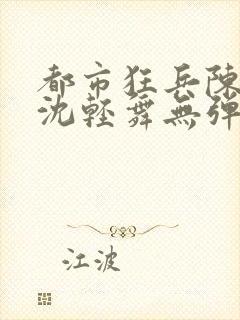 都市狂兵陳
沈輕舞無彈
江波